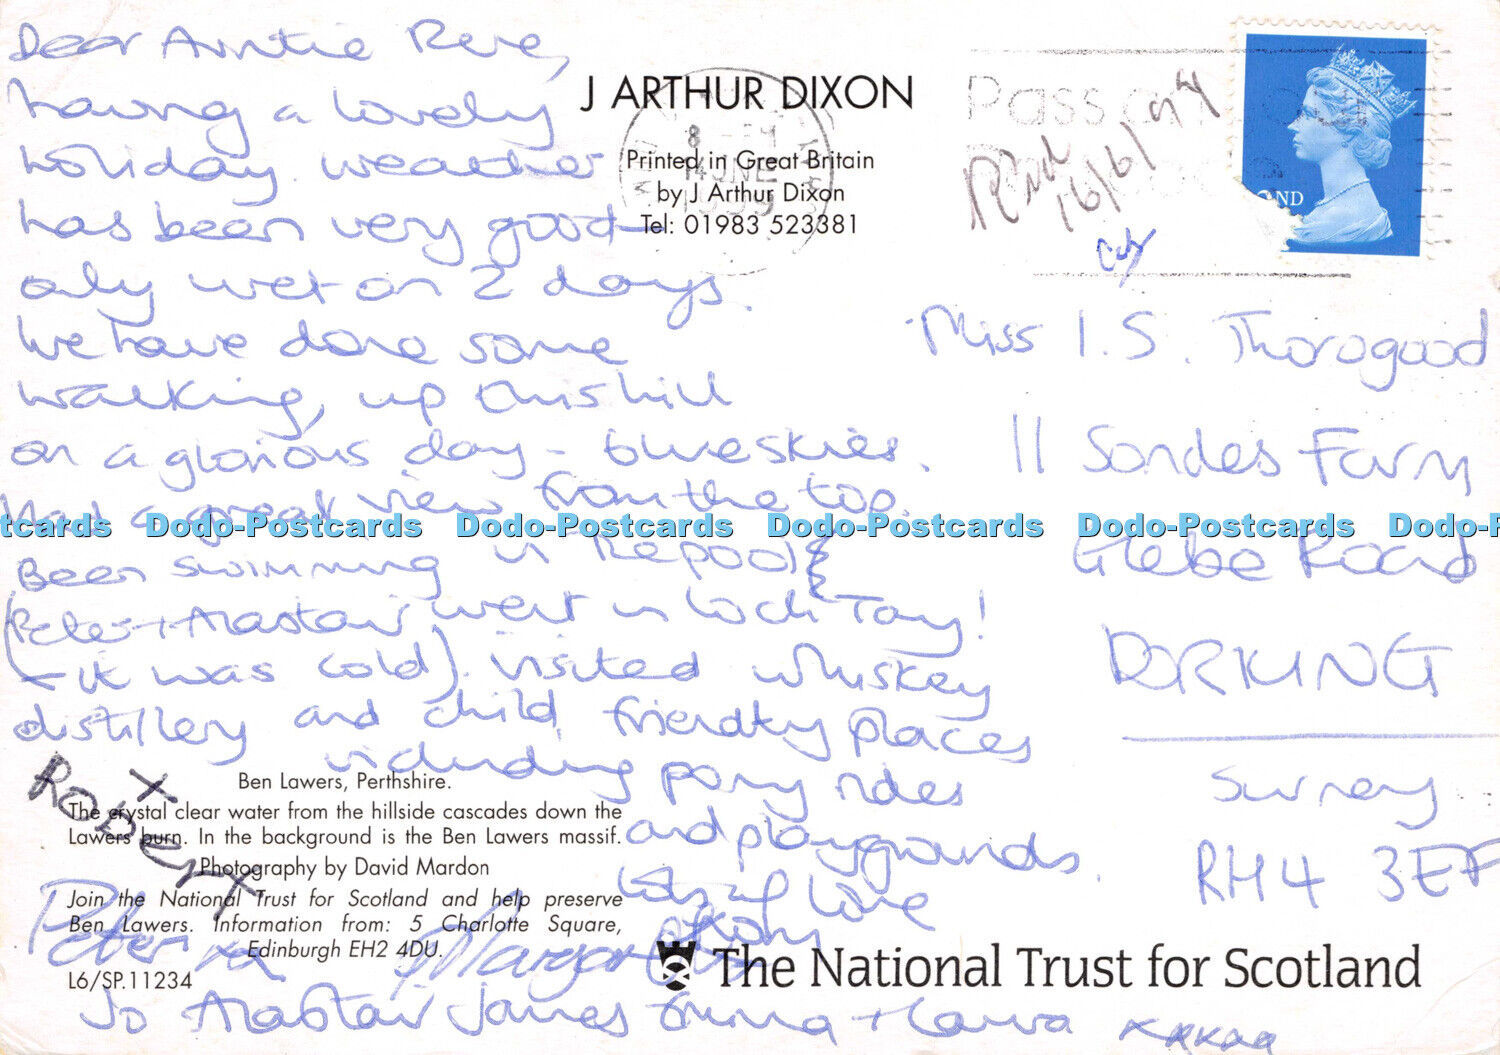 Dear Auntie Rene,
having a lovely
holiday. weather
has been very good -
only wet on 2 days.
We have done some
walking, up this hill
on a glorious day - blue skies.
Had a great view from the top.
Been swimming in the pool &
(Peter + Alastair went in Loch Tay!
- it was cold). visited whiskey
distillery and child friendly places
including pony rides
and playgrounds.
Lots of love
Peter xx Margaret Kathy
Jo Alastair James Emma + Laura xxxxx
x
Robert
J ARTHUR DIXON
Printed in Great Britain
by J Arthur Dixon
Tel: 01983 523381
14 JUNE
1999
Pass on
16/6/99
ND
Miss I. S. Thorogood
11 Sondes Farm
Glebe Road
DORKING
Surrey
RH4 3EF
Dodo-Postcards Dodo-Postcards Dodo-Postcards Dodo-Postcards
Ben Lawers, Perthshire.
The crystal clear water from the hillside cascades down the
Lawers burn. In the background is the Ben Lawers massif.
Photography by David Mardon
Join the National Trust for Scotland and help preserve
Ben Lawers. Information from: 5 Charlotte Square,
Edinburgh EH2 4DU.
L6/SP.11234
The National Trust for Scotland